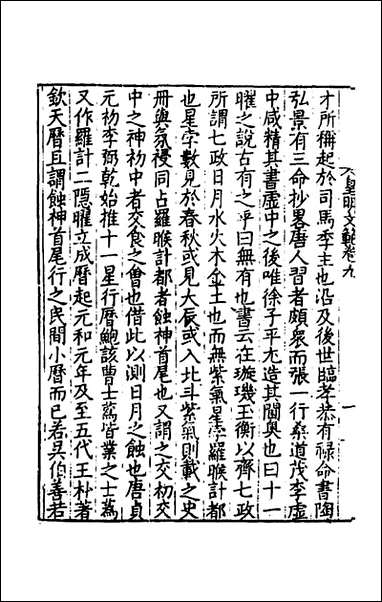 皇明文範卷九
一
才所稱起於司馬季主也沿及後世臨孝恭有祿命書陶
弘景有三命抄畧唐人習者頗衆而張一行桑道茂李虛
中咸精其書虛中之後唯徐子平尤造其閫奧也曰十一
曜之說古有之乎曰無有也書云在璇璣玉衡以齊七政
所謂七政日月水火木金土也而無紫氣星孛羅睺計都
也星孛數見於春秋或見大辰或入北斗紫氣則載之史
冊與氛祲同占羅睺計都者蝕神首尾也又謂之交初交
中之神初中者交食之會也借此以測日月之蝕也唐貞
元初李弼乾始推十一星行曆鮑該曹士蒍皆業之士蒍
又作羅計二隱曜立成曆起元和元年及至五代王朴著
欽天曆且謂蝕神首尾行之民間小曆而已若吳伯善若